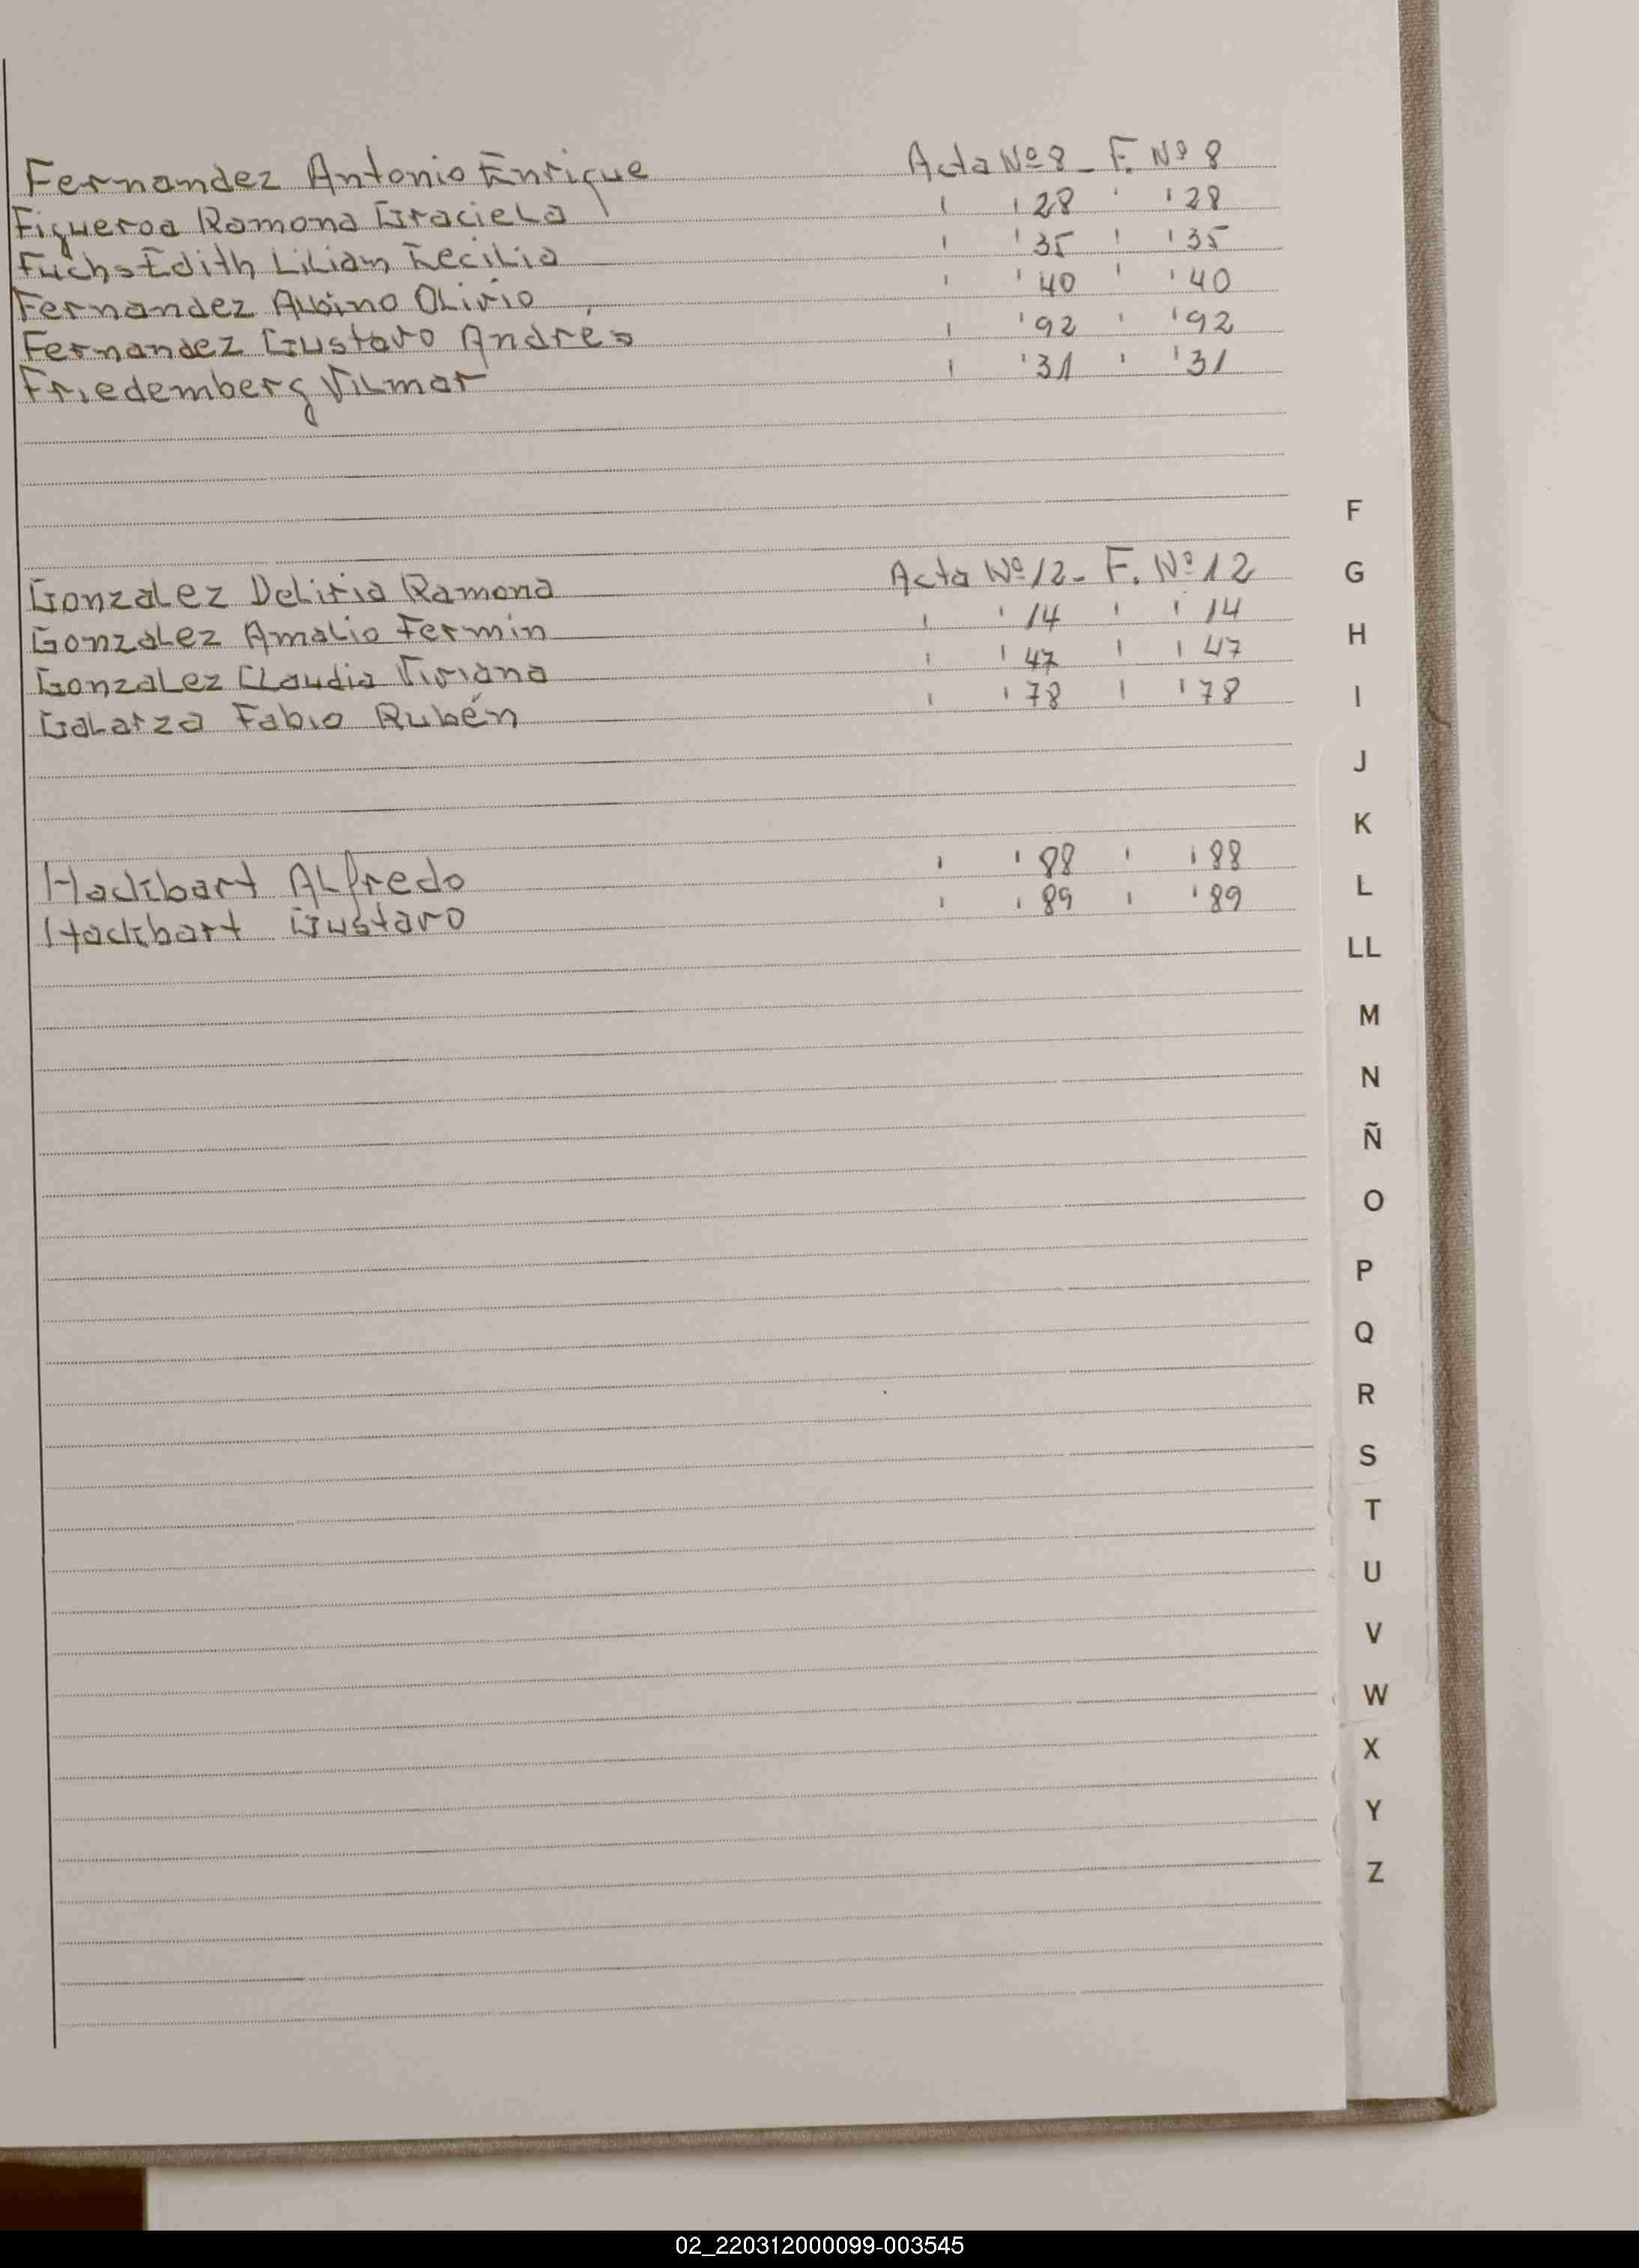 Fernandez Antonio Enrique Acta Nº 8 - F. Nº 8
Figueroa Ramona Graciela " " 28 " " 28
Fuchs Edith Liliam Cecilia " " 35 " " 35
Fernandez Albino Olivio " " 40 " " 40
Fernandez Gustavo Andrés " " 92 " " 92
Friedemberg Vilmar " " 31 " " 31
Gonzalez Delitia Ramona Acta Nº 12 - F. Nº 12
Gonzalez Amalio Fermin " " 14 " " 14
Gonzalez Claudia Viviana " " 47 " " 47
Galarza Fabio Rubén " " 78 " " 78
Hackbart Alfredo " " 88 " " 88
Hackbart Gustavo " " 89 " " 89
F
G
H
I
J
K
L
LL
M
N
Ñ
O
P
Q
R
S
T
U
V
W
X
Y
Z
02_220312000099-003545